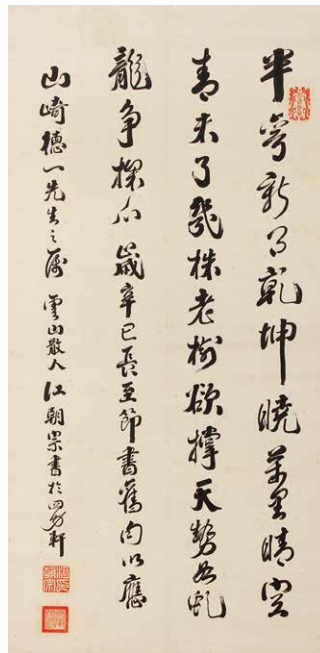 半弯新月乾坤曉萬里晴空
青未了幾株老樹欲撐天勢如虬
龍爭探爪 歲辛巳長至節書舊句以應
山崎德一先生之屬 雲山散人江朝宗書於四勿軒